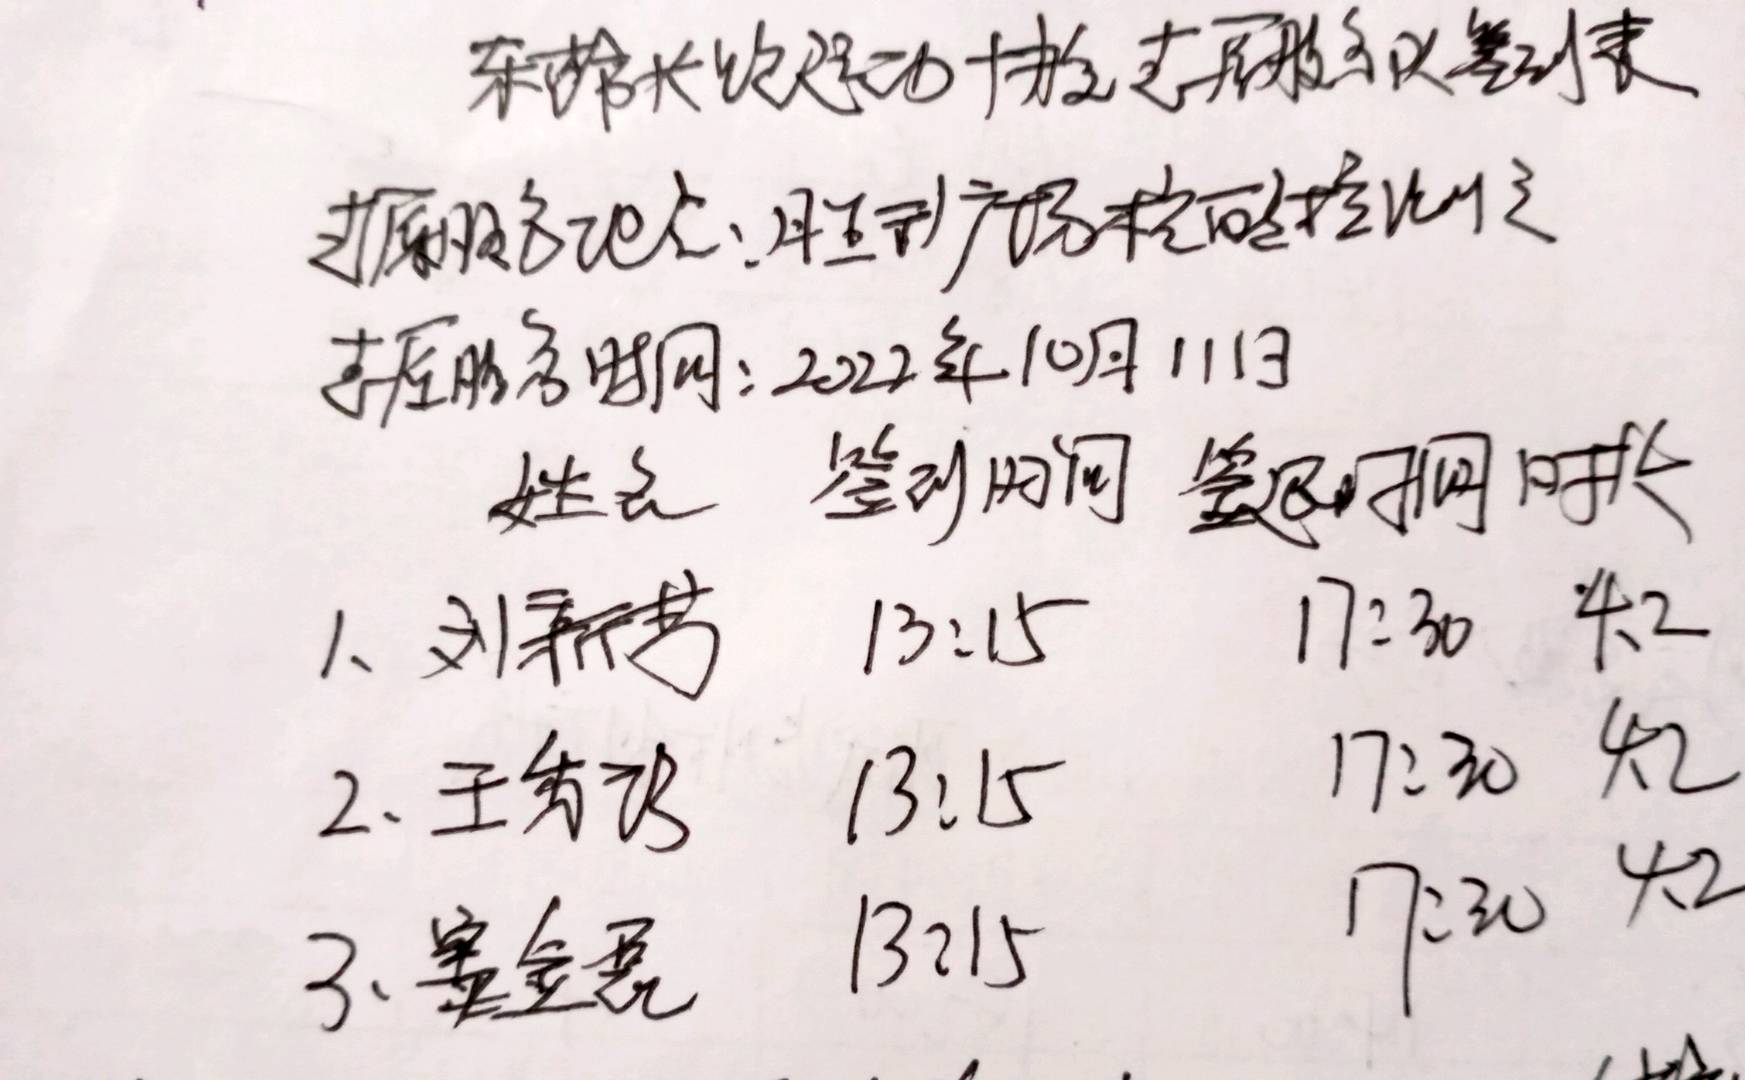 东营长跑运动协会志愿服务队签到表
志愿服务地点：胜利广场核酸检测点
志愿服务时间：2022年10月11日
姓名 签到时间 签退时间 时长
1、刘新芳 13:15 17:30 4.2
2、王秀 13:15 17:30 4.2
3、金 13:15 17:30 4.2